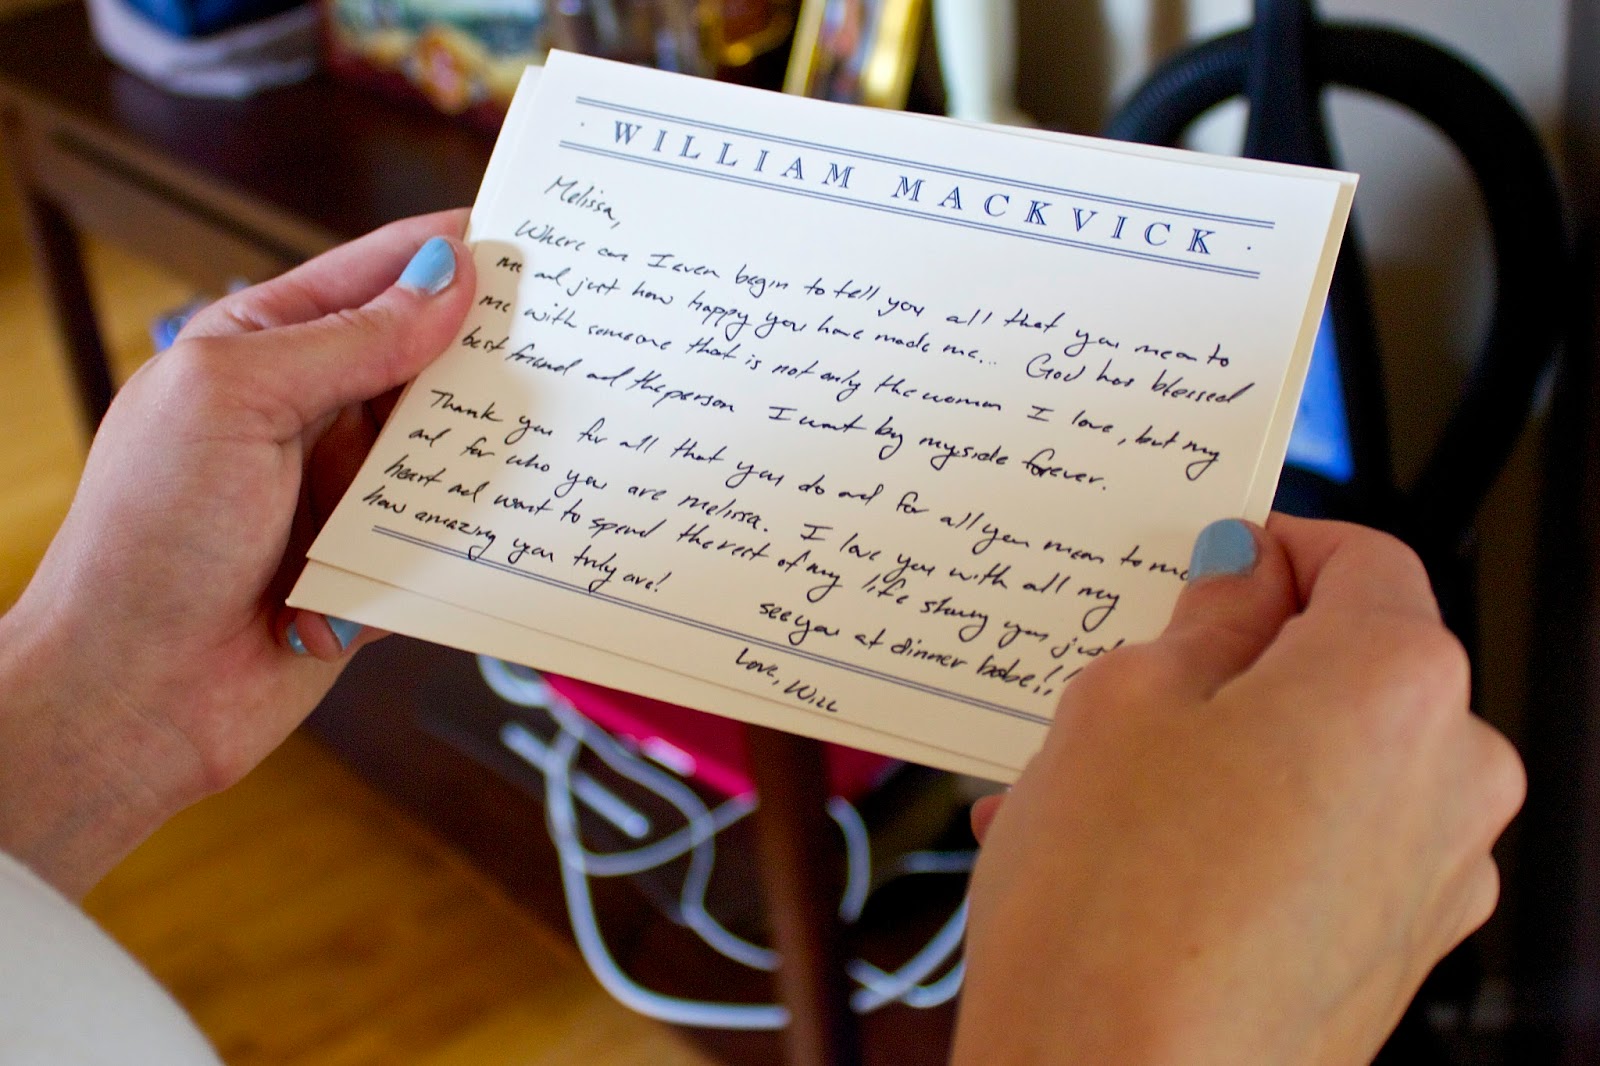 · WILLIAM MACKVICK ·
Melissa,
Where can I even begin to tell you all that you mean to
me and just how happy you have made me... God has blessed
me with someone that is not only the woman I love, but my
best friend and the person I want by my side forever.
Thank you for all that you do and for all you mean to me
and for who you are melissa. I love you with all my
heart and want to spend the rest of my life showing you just
how amazing you truly are!
see you at dinner babe!!!
Love, Will